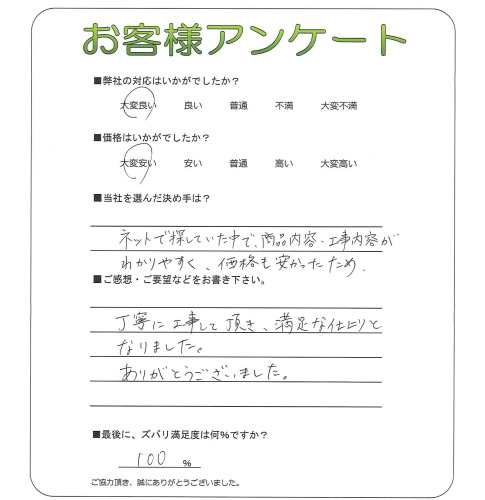 お客様アンケート
■弊社の対応はいかがでしたか？
大変良い 良い 普通 不満 大変不満
■価格はいかがでしたか？
大変安い 安い 普通 高い 大変高い
■当社を選んだ決め手は？
ネットで探していた中で、商品内容・工事内容が
わかりやすく、価格も安かったため.
■ご感想・ご要望などをお書き下さい。
丁寧に工事して頂き、満足な仕上りと
なりました。
ありがとうございました。
■最後に、ズバリ満足度は何％ですか？
100 %
ご協力頂き、誠にありがとうございました。